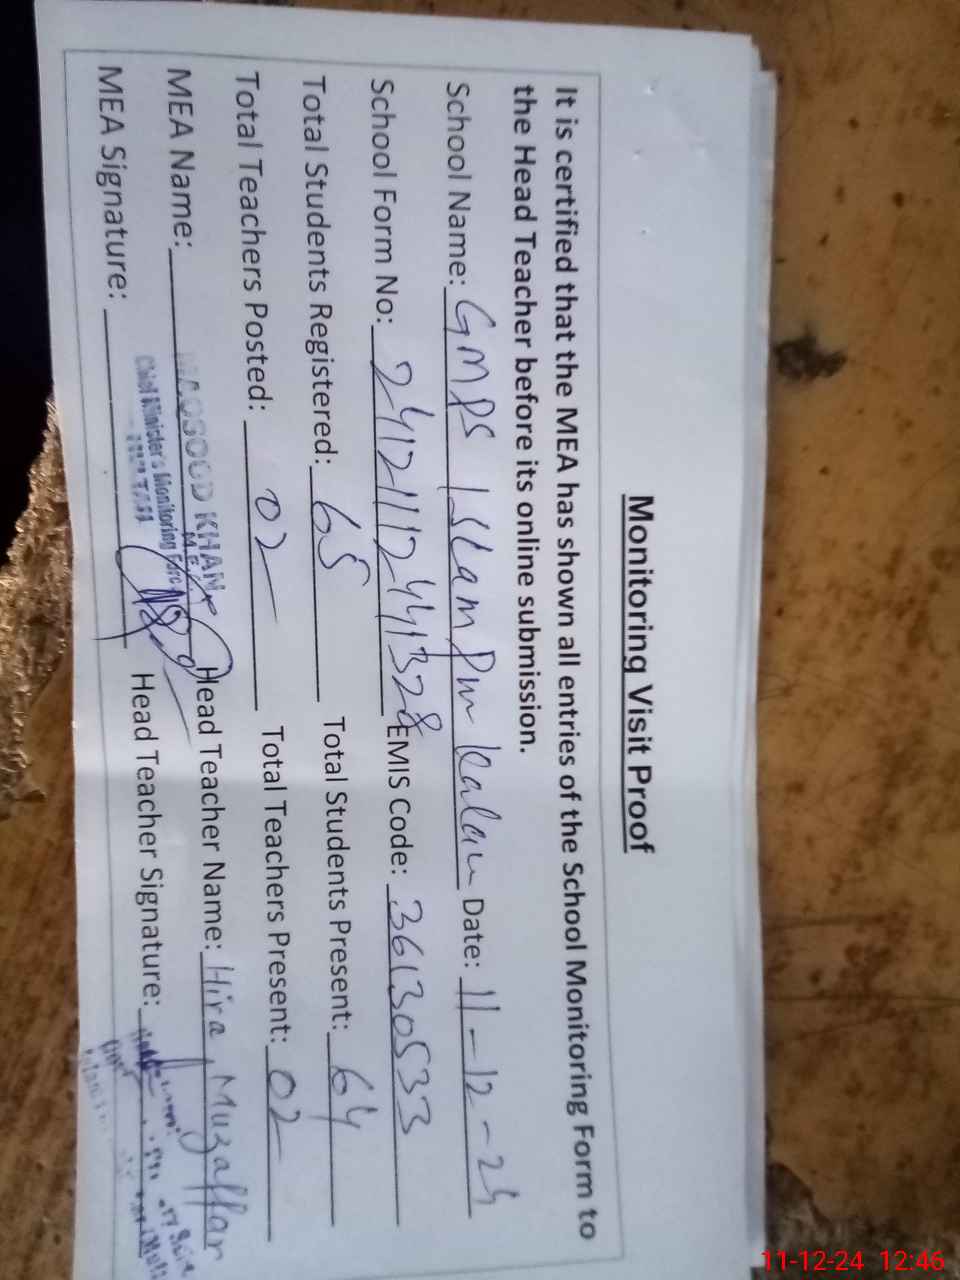 Monitoring Visit Proof
It is certified that the MEA has shown all entries of the School Monitoring Form to
the Head Teacher before its online submission.
School Name: GMPS Islam Pur Kalan Date: 11-12-24
School Form No: 24121112441328 EMIS Code: 36130533
Total Students Registered: 65 Total Students Present: 64
Total Teachers Posted: 02 Total Teachers Present: 02
MEA Name: MAQSOOD KHAN Head Teacher Name: Hira Muzaffar
M.E.A
Chief Minister's Monitoring Force
MEA Signature: Head Teacher Signature:
11-12-24 12:46